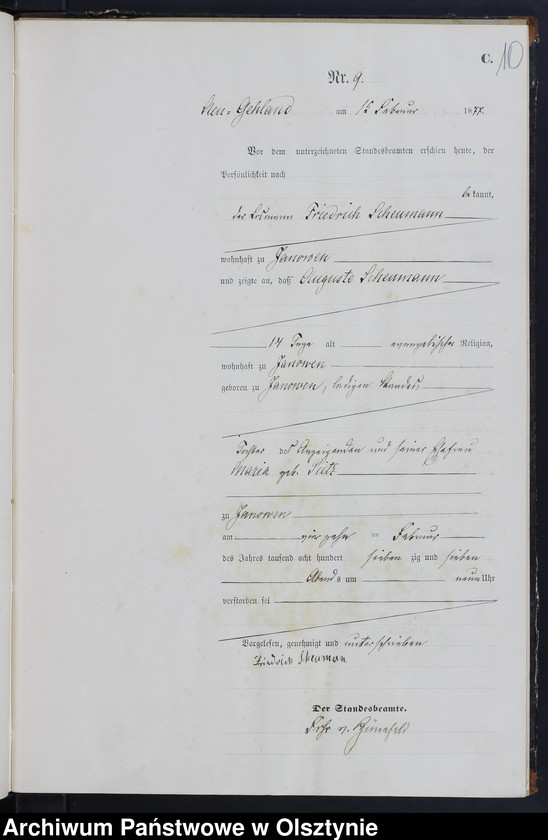 C. 10
Nr. 9.
Neu-Gehland am 15 Februar 1877.
Vor dem unterzeichneten Standesbeamten erschien heute, der
Persönlichkeit nach
bekannt,
der Friedrich Scheumann
wohnhaft zu Janowen
und zeigte an, daß Auguste Scheumann
14 Tage alt evangelischer Religion,
wohnhaft zu Janowen
geboren zu Janowen, ledigen Standes,
Tochter des Anzeigenden und seiner Ehefrau
Maria geb.
zu Janowen
am vierzehn Februar
des Jahres tausend acht hundert siebenzig und sieben
Abends um neun Uhr
verstorben sei
Vorgelesen, genehmigt und unterschrieben
Friedrich
Der Standesbeamte.
Archiwum Państwowe w Olsztynie